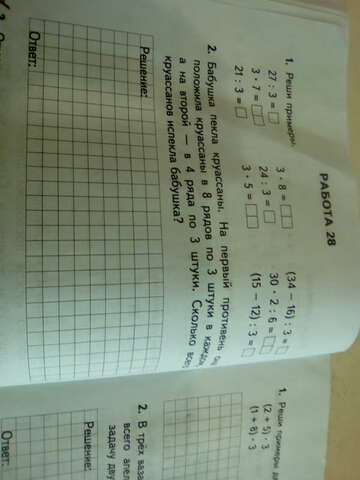 РАБОТА 28
1. Реши примеры.
27 : 3 = 3 · 8 = (34 – 16) : 3 =
3 · 7 = 24 : 3 = 30 · 2 : 6 =
21 : 3 = 3 · 5 = (15 – 12) : 3 =
2. Бабушка пекла круассаны. На первый противень она
положила круассаны в 8 рядов по 3 штуки в каждом,
а на второй — в 4 ряда по 3 штуки. Сколько всего
круассанов испекла бабушка?
Решение:
Ответ:
1. Реши примеры
(2 + 5) · 3
(1 + 8) · 3
2. В трёх
всего
задачу
Решение:
Ответ: